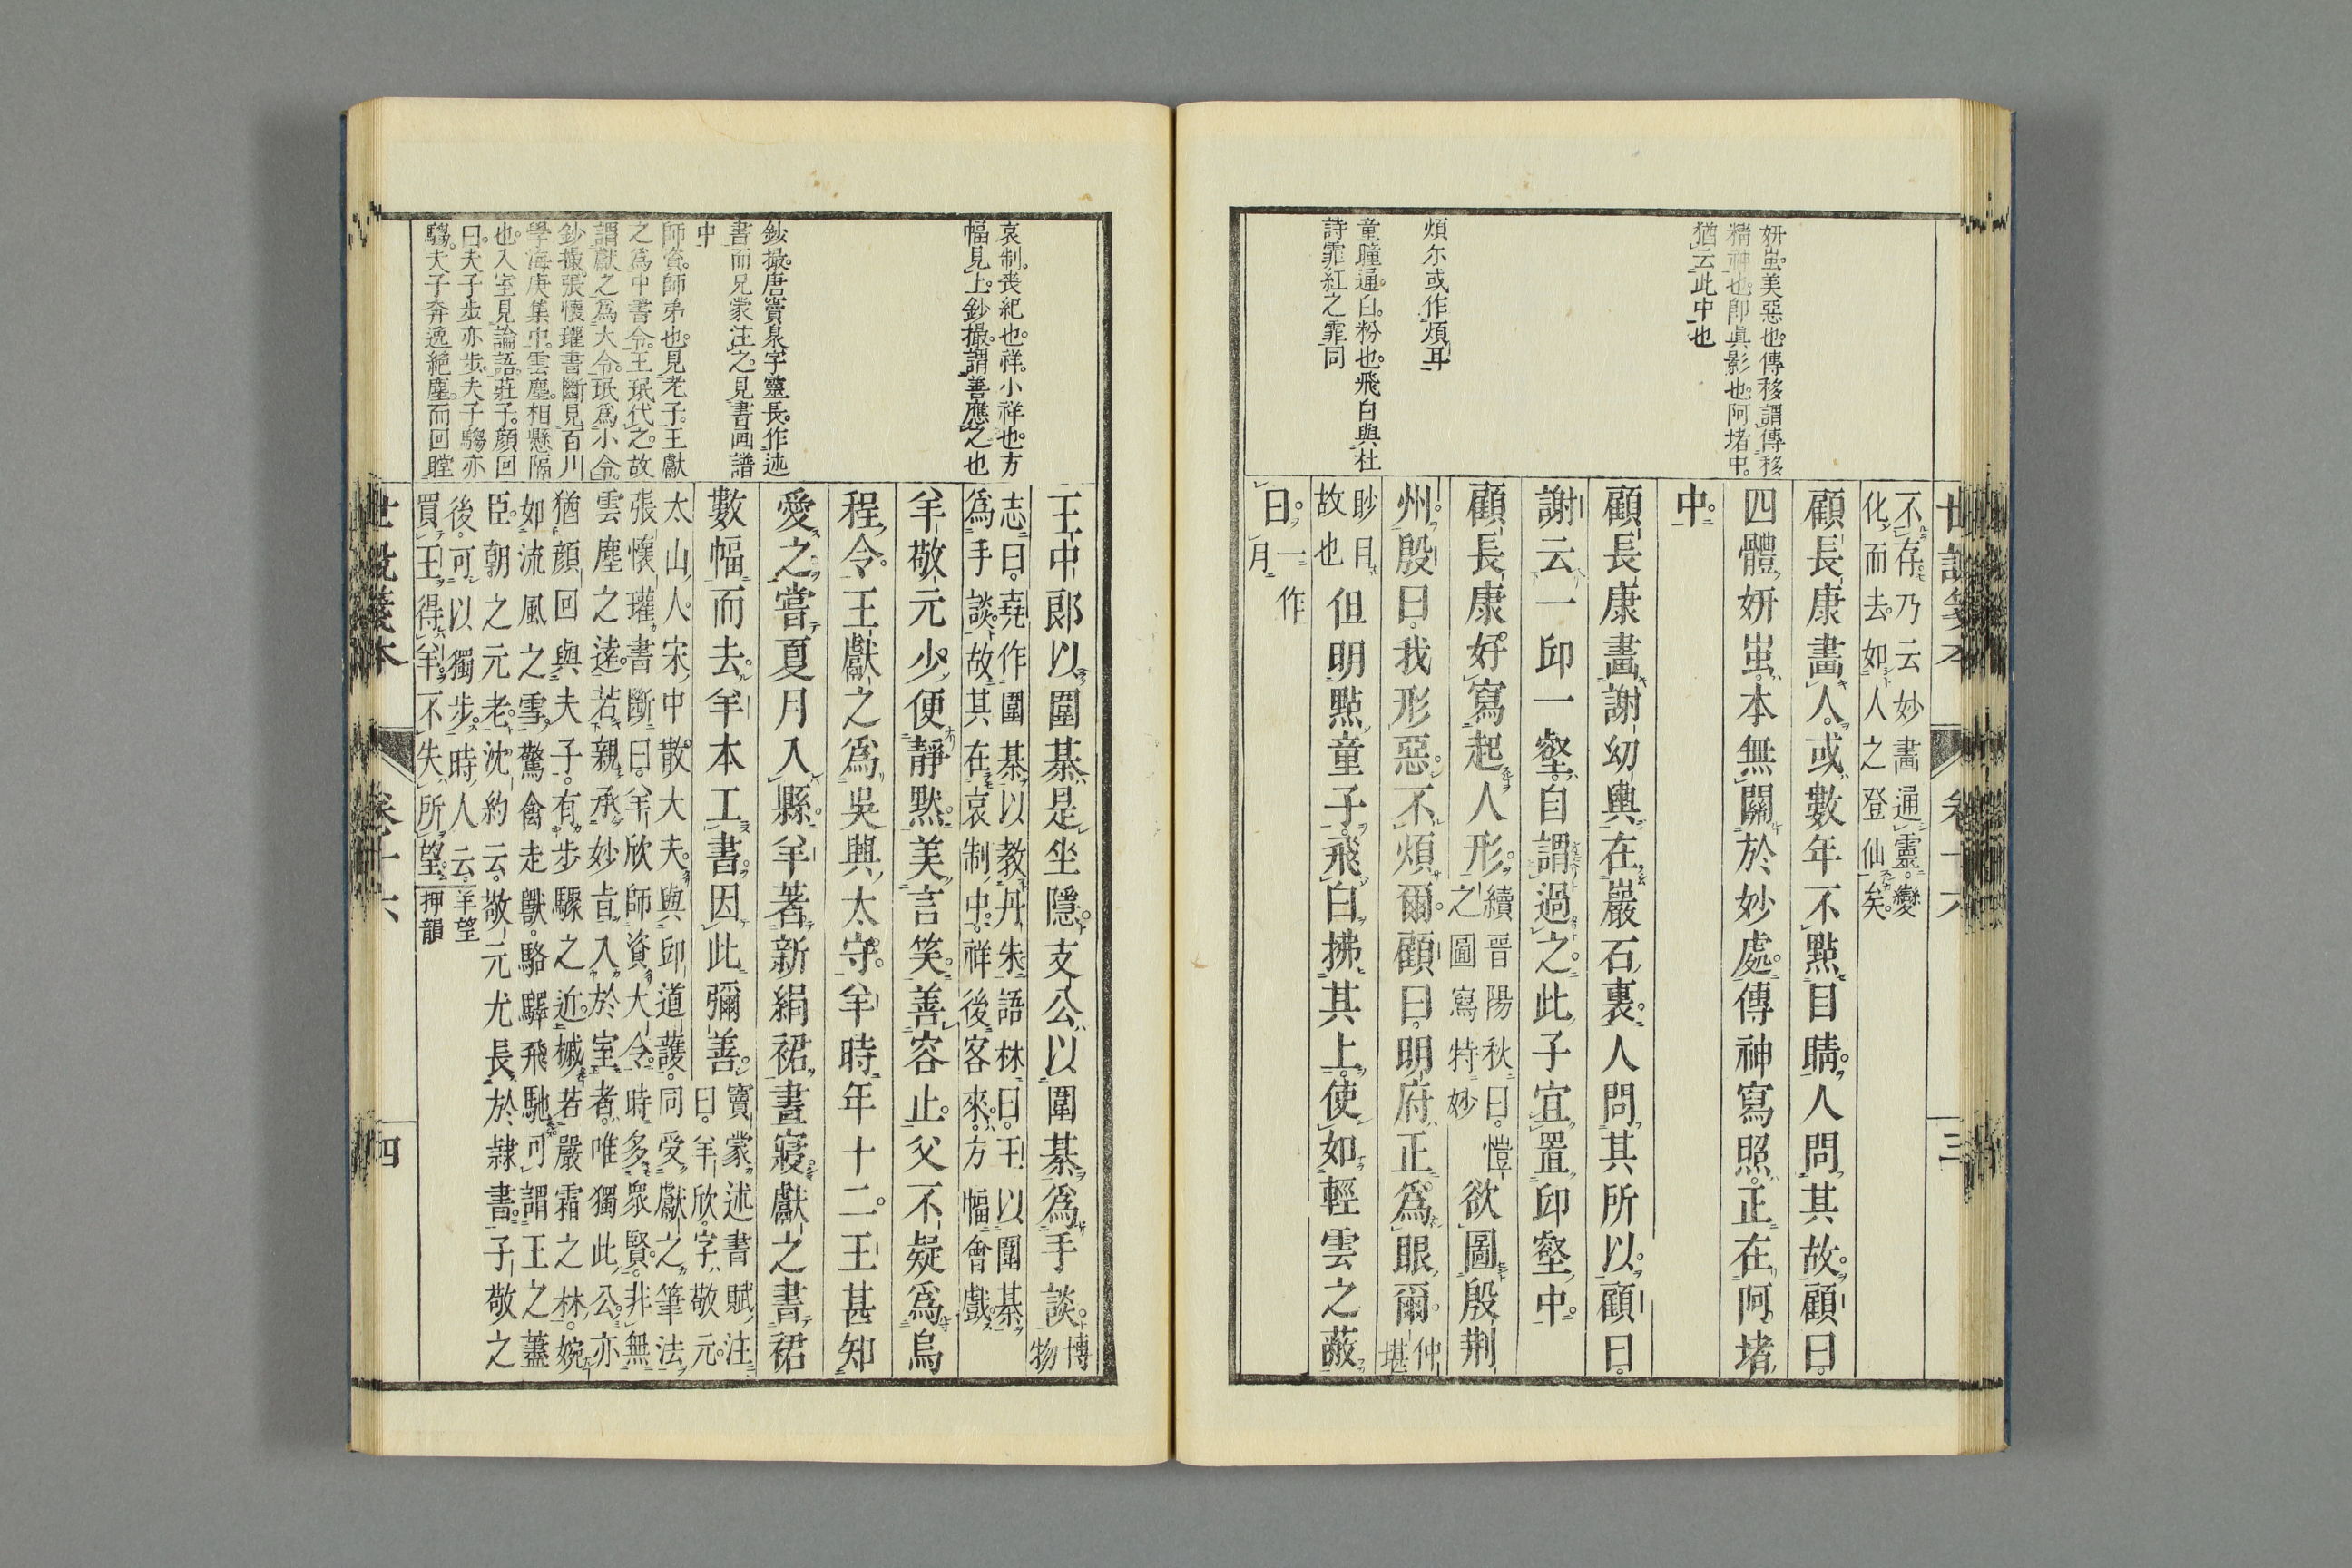 世說箋本 卷十六 三
妍蚩美惡也傳移謂傳移
精神也卽眞影也阿堵中
猶云此中也
煩尓或作煩耳
童瞳通白粉也飛白與杜
詩霏紅之霏同
不存乃云妙畵通靈變
化而去如人之登仙矣
顧長康畵人或數年不點目睛人問其故顧曰
四體妍蚩本無關於妙處傳神寫照正在阿堵
中
顧長康畵謝幼輿在巖石裏人問其所以顧曰
謝云一邱一壑自謂過之此子宜置邱壑中
顧長康好寫起人形續晉陽秋曰愷之圖寫特妙欲圖殷荆
州殷曰我形惡不煩爾顧曰明府正爲眼爾仲堪
眇目故也但明點童子飛白拂其上使如輕雲之蔽
日一作月
哀制喪紀也祥小祥也方
幅見上鈔撮謂善應之也
鈔撮唐竇泉字靈長作述
書而兄蒙注之見書画譜
中
師資師弟也見老子王獻
之爲中書令王珉代之故
謂獻之爲大令珉爲小令
鈔撮張懷瓘書斷見百川
學海庚集中雲塵相懸隔
也入室見論語莊子顔回
曰夫子步亦步夫子騶亦
騶夫子奔逸絶塵而回瞠
王中郎以圍棊是坐隱支公以圍棊爲手談博物
志曰堯作圍棊以教丹朱語林曰王以圍棊
爲手談故其在哀制中祥後客來方幅會戲
羊敬元少便靜默美言笑善容止父不疑爲烏
程令王獻之爲吳興太守羊時年十二王甚知
愛之嘗夏月入縣羊著新絹裙晝寢獻之書裙
數幅而去羊本工書因此彌善竇蒙述書賦注曰羊欣字敬元
太山人宋中散大夫與邱道護同受獻之筆法
張懷瓘書斷曰羊欣師資大令時多衆賢非無
雲塵之遠若親承妙旨入於室者唯獨此公亦
猶顏回與夫子有步驟之近槭若嚴霜之林婉
如流風之雪驚禽走獸駱驛飛馳可謂王之藎
臣朝之元老沈約云敬元尤長於隷書子敬之
後可以獨步時人云
買王得羊不失所望羊望押韻
世說箋本 卷十六 四